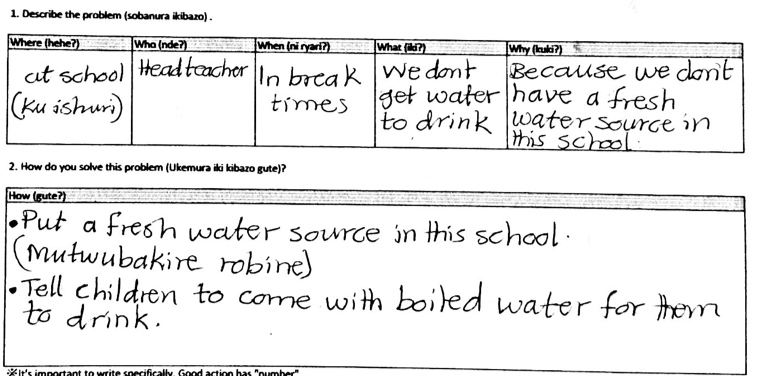 1. Describe the problem (sobanura ikibazo).
Where (hehe?) Who (nde?) When (ni ryari?) What (iki?) Why (kuki?)
at school Head teacher In break We dont Because we don't
(Ku ishuri) times get water have a fresh
to drink water source in
this school.
2. How do you solve this problem (Ukemura iki kibazo gute)?
How (gute?)
•Put a fresh water source in this school.
(Mutwubakire robine)
•Tell children to come with boiled water for them
to drink.
※It's important to write specifically. Good action has "number"